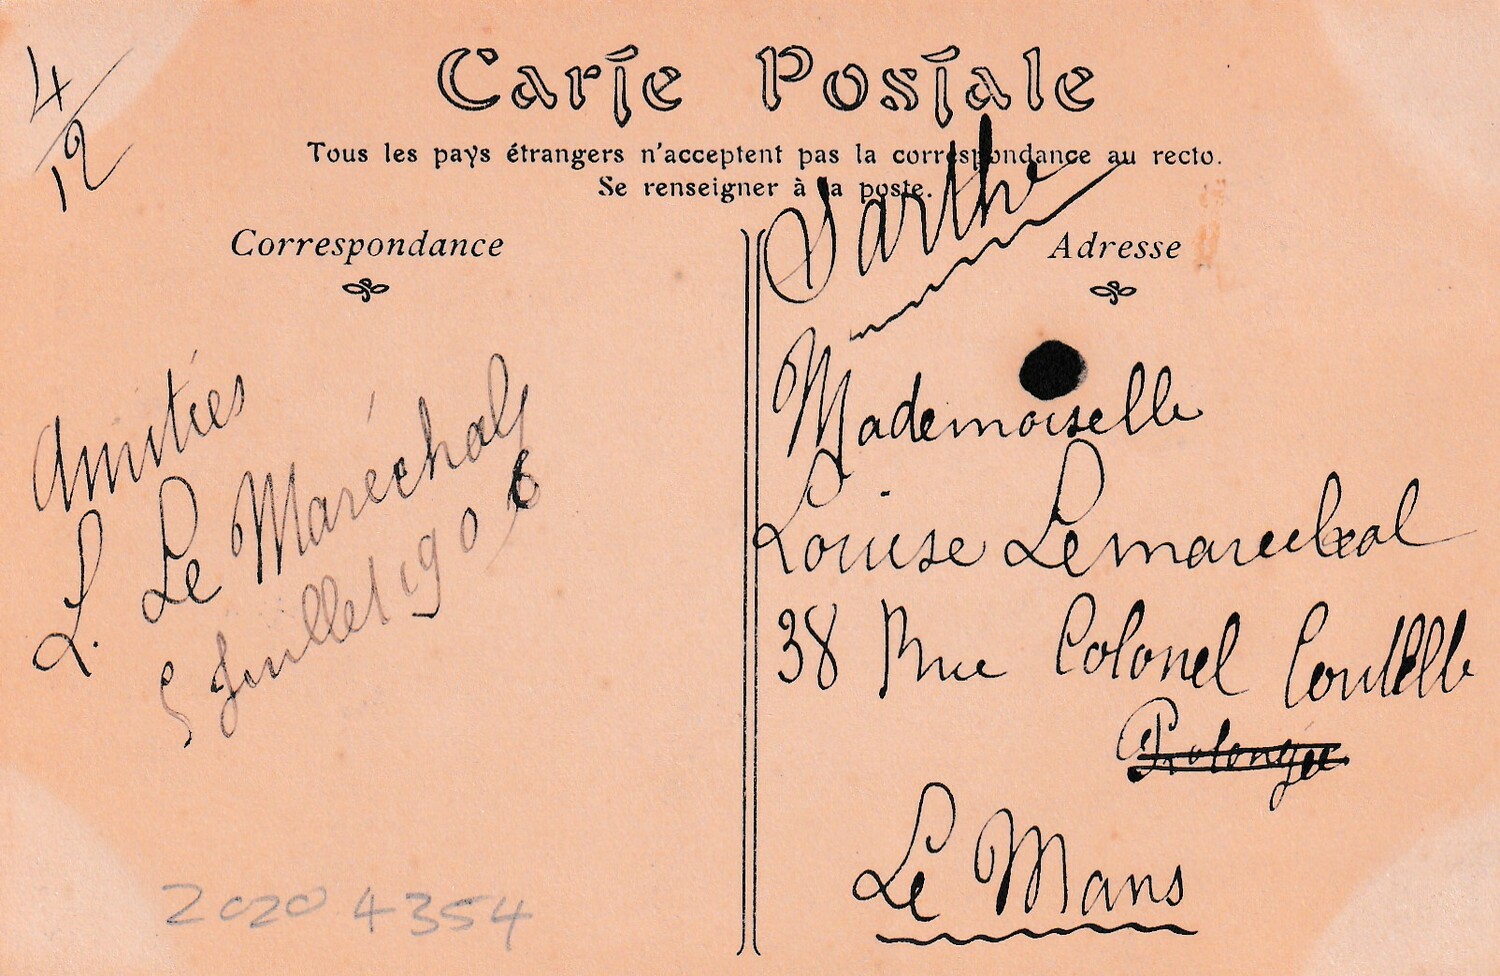 4/12
Carte Postale
Tous les pays étrangers n'acceptent pas la correspondance au recto.
Se renseigner à la poste.
Correspondance
Amitiés
L. Le Maréchal
5 Juillet 1906
2020 4354
Sarthe
Adresse
Mademoiselle
Louise Lemarechal
38 Rue Colonel Coutelle
Prolongée
Le Mans